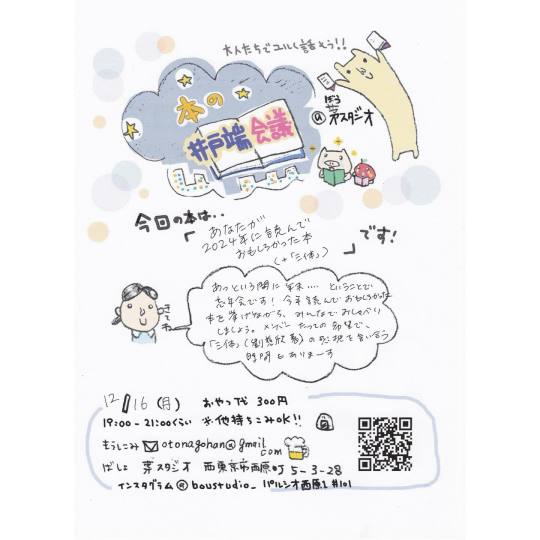 大人たちでユルく話そう!!
本の
井戸端会議
ぼう
@ 茅スタジオ
今回の本は..
「あなたが
2024年に読んで
おもしろかった本
(+「三体」)」です!
きてね
あっという間に年末.... ということで
忘年会です! 今年読んでおもしろかった
本を挙げながら、みんなでおしゃべり
しましょう。メンバーたっての希望で、
「三体」(劉慈欣著)の感想を言い合う
時間もありまーす
12/16(月) おやつ代 300円
19:00-21:00くらい ※他持ちこみOK!!
もうしこみ otonagohan@gmail
.com
ばしょ 茅スタジオ 西東京市西原町5-3-28
インスタグラム@boustudio_ パルシオ西原1 #101